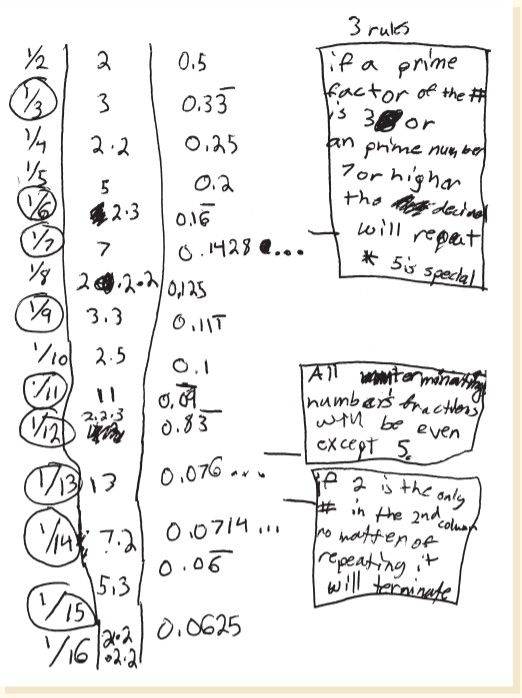 3 rules
1/2 2 0.5
1/3 3 0.33
1/4 2.2 0.25
1/5 5 0.2
1/6 2.3 0.16
1/7 7 0.1428...
1/8 2.2.2 0.125
1/9 3.3 0.111
1/10 2.5 0.1
1/11 11 0.09
1/12 2.2.3 0.83
1/13 13 0.076...
1/14 7.2 0.0714...
1/15 5.3 0.06
1/16 2.2.2.2 0.0625
if a prime
factor of the #
is 3 or
an prime number
7 or higher
the decimal
will repeat
* 5 is special
All terminating
numbers fractions
will be even
except 5.
if 2 is the only
# in the 2nd column
no matter of
repeating it
will terminate